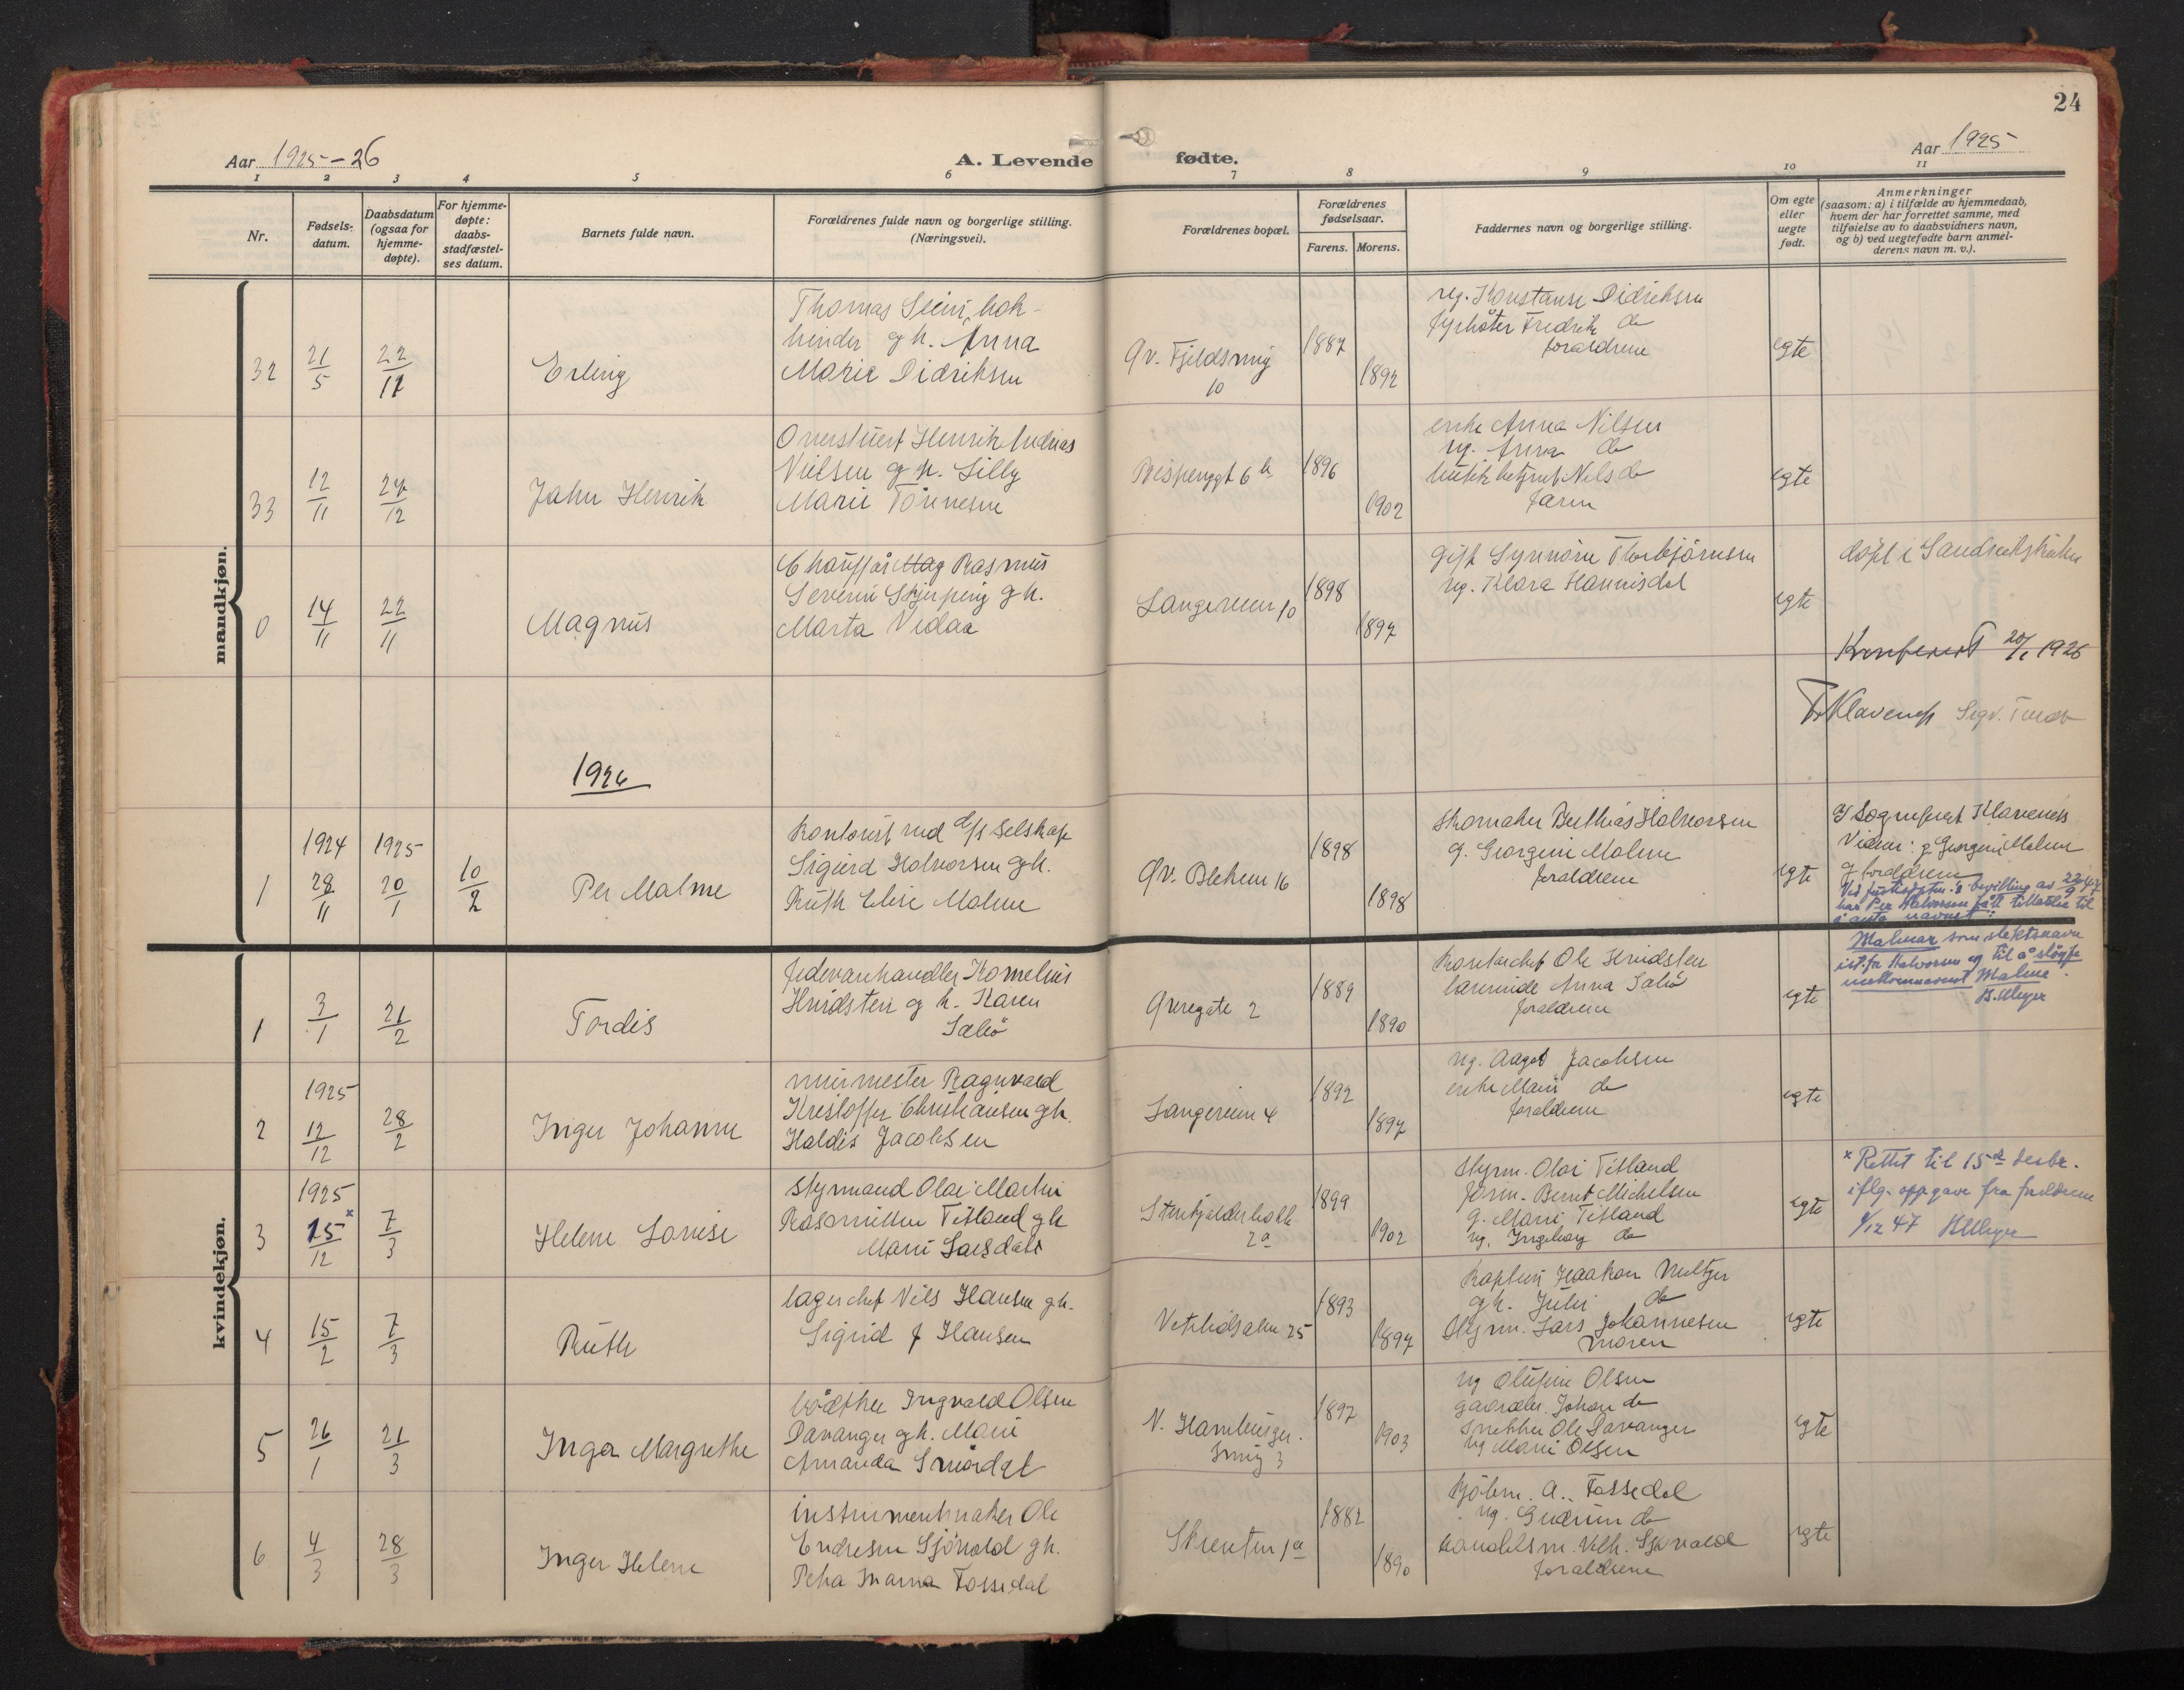 24
Aar 1925-26
A. Levende fødte.
Aar 1925
1 2 3 4 5 6 7 8 9 10 11
Nr.
Fødsels-
datum.
Daabsdatum
(ogsaa for
hjemme-
døpte).
For hjemme-
døpte:
daabs-
stadfæstel-
ses datum.
Barnets fulde navn.
Forældrenes fulde navn og borgerlige stilling.
(Næringsvei).
Forældrenes bopæl.
Forældrenes
fødselsaar.
Farens. Morens.
Faddernes navn og borgerlige stilling.
Om egte
eller
uegte
født.
Anmerkninger
(saasom: a) i tilfælde av hjemmedaab,
hvem der har forrettet samme, med
tilføielse av to daabsvidners navn,
og b) ved uegtefødte barn anmel-
derens navn m. v.).
mandkjøn.
32
21/5
22/12
Erling
Thomas Stein, bok-
binder g h. Anna
Marie Didriksen
Øv. Fjeldsmug
10
1887
1892
ug. Konstanse Didriksen
fyrbøter Fredrik do
forældrene
egte
33
12/11
27/12
Jahn Henrik
Overstuert Henrik Andreas
Nielsen g h. Lilly
Marie Tönnesen
Bispenggt 6 b
1896
1902
enke Anna Nilsen
ug. Anna do
butikbetjent Nils do
faren
egte
0
14/11
22/11
Magnus
Chauffør Mag Rasmus
Severin Skjerping g h.
Marta Vidaa
Langereien 10
1898
1897
gift Synnøve Thorbjörnsen
ug. Klara Hannisdal
egte
döpt i Sandvikskirken
Konferert 20/1 1926
Fr Klaveness Sigv.
1926
1
1924
28/11
1925
20/1
10/2
Per Malme
Kontorist ved d/s Selskap
Sigurd Halvorsen g h.
Ruth Elise Malme
Øv. Blekevn 16
1898
1898
Skomaker Berthias Halvorsen
g. Georgine Malme
forældrene
egte
Af Sogneprest Klaveness
Vidner: g Georgine Malme
og forældrene
Ved justisdptm.s bevilling av 22/9 47
har Per Halvorsen fått tillatelse til
å anta navnet:
Malmar som slektsnavn
istf. for Halvorsen og til å sløyfe
mellemnavnet Malme.
H. Meyer
kvindekjøn.
1
3/1
21/2
Tordis
fedevarehandler Kornelius
Hvidsten g h. Karen
Sælø
Øvregate 2
1889
1890
Kontorchef Ole Hvidsten
lærerinde Anna Sælø
forældrene
egte
2
1925
12/12
28/2
Inger Johanne
murmester Ragnvald
Kristoffer Christiansen g h.
Haldis Jacobsen
Langereien 4
1892
1897
ug. Aagot Jacobsen
enke Marie do
forældrene
egte
3
1925
15 x/12
7/3
Helene Lovise
Styrmand Olai Martin
Rasmussen Titland g h
Marie Larsdatr
Stenkjelderbakk
2a
1899
1902
Styrm. Olai Titland
form. Bernt Michelsen
g. Marie Titland
ug. Ingeborg do
egte
x Rettet til 15de desbr.
iflg. oppgave fra foreldrene
9/12 47 H Meyer
4
15/2
7/3
Ruth
lagerchef Nils Hansen g h.
Sigrid f Hansen
Vetrlidsalm 25
1893
1897
Kaptein Haakon Meltzer
g h. Julie do
Styrm. Lars Johannesen
moren
egte
5
26/1
21/3
Inga Margrethe
bödker Ingvald Olsen
Davanger g h. Marie
Amanda Smørdal
N. Hamburger-
smug 3
1897
1903
ug Olufine Olsen
Johan do
snekker Ole Davanger
ug Marie Olsen
egte
6
4/3
28/3
Inger Helene
instrumentmaker Ole
Endresen Sjövold g h.
Petra Marna Fossedal
Skreuten 1a
1882
1890
Kjöbm. A. Fossedal
ug. Gudrun do
handelsm. Vilh. Sjøvold
forældrene
egte